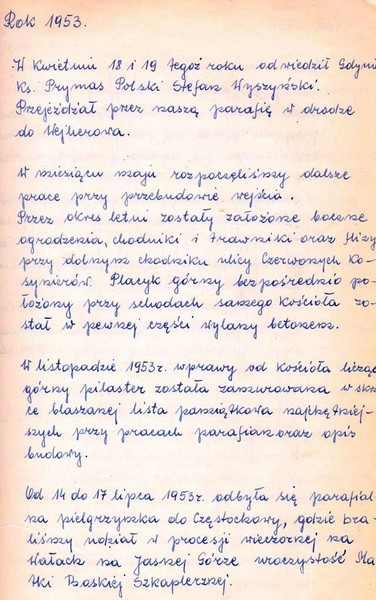 Rok 1953.
W kwietniu 18 i 19 tegoż roku odwiedził Gdynię
Ks. Prymas Polski Stefan Wyszyński.
Przejeżdżał przez naszą parafię w drodze
do Wejherowa.
W miesiącu maju rozpoczęliśmy dalsze
prace przy przebudowie wejścia.
Przez okres letni zostały założone boczne
ogrodzenia, chodniki i trawniki oraz
przy dolnym chodniku ulicy Czerwonych Ko-
synierów. Placyk górny bezpośrednio po-
łożony przy schodach samego Kościoła zo-
stał w pewnej części wylany betonem.
W listopadzie 1953r. wprawy od Kościoła licząc
górny pilaster została zamurowana w skrzyn-
ce blaszanej lista pamiątkowa najchętniej-
szych przy pracach parafian oraz opis
budowy.
Od 14 do 17 lipca 1953r. odbyła się parafial-
na pielgrzymka do Częstochowy, gdzie bra-
liśmy udział w procesji wieczornej na
Wałach na Jasnej Górze uroczystość Ma-
tki Boskiej Szkaplerznej.